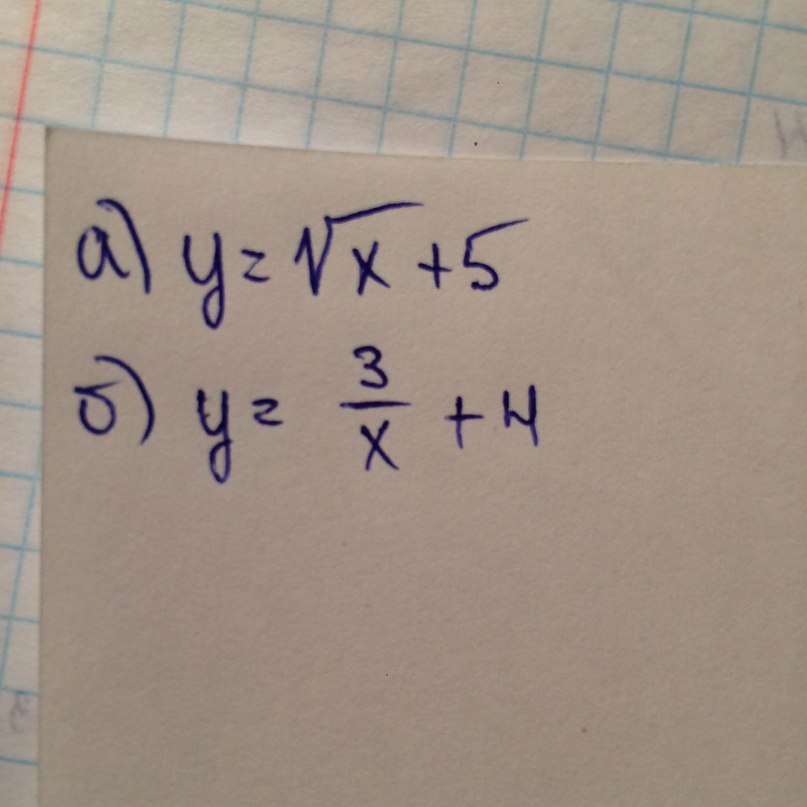 а) y = √x + 5
б) y = 3/x + 4